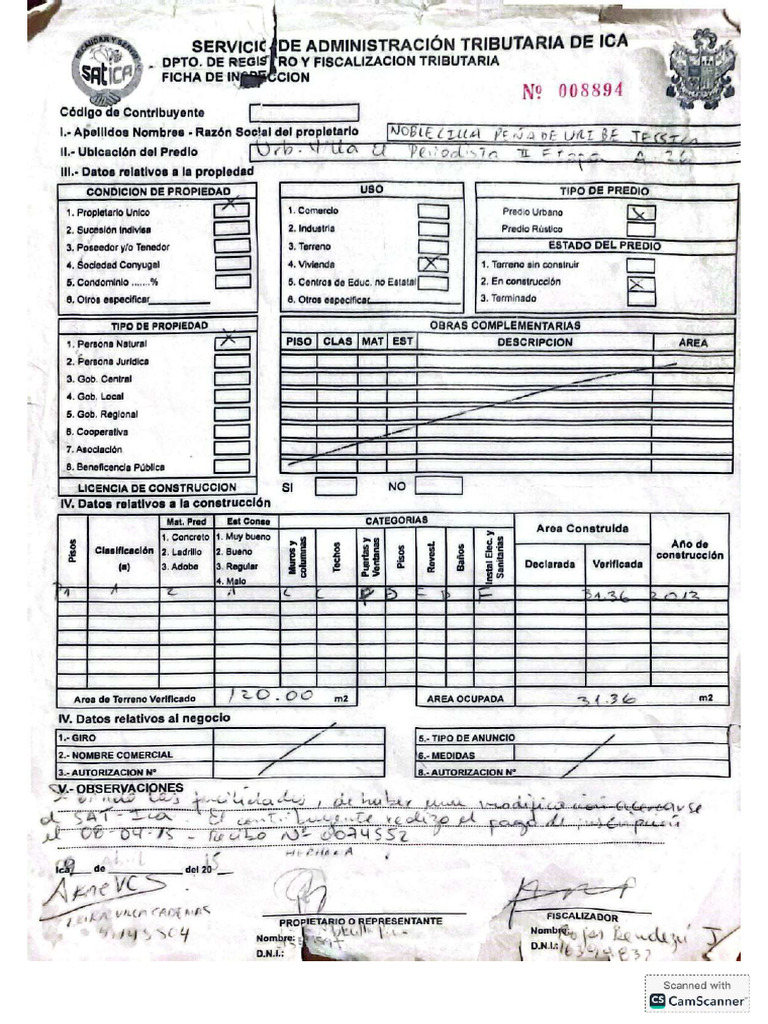 RECAUDAR Y SERVIR
SATICA
SERVICIO DE ADMINISTRACIÓN TRIBUTARIA DE ICA
DPTO. DE REGISTRO Y FISCALIZACION TRIBUTARIA
FICHA DE INSPECCION
Nº 008894
Código de Contribuyente
I.- Apellidos Nombres - Razón Social del propietario NOBLECILLA PEÑA DE URIBE JESSICA
II.- Ubicación del Predio Urb. Villa El Periodista II Etapa A-26
III.- Datos relativos a la propiedad
CONDICION DE PROPIEDAD
1. Propietario Unico X
2. Sucesión Indivisa
3. Poseedor y/o Tenedor
4. Sociedad Conyugal
5. Condominio .......%
6. Otros especificar
USO
1. Comercio
2. Industria
3. Terreno
4. Vivienda X
5. Centros de Educ. no Estatal
6. Otros especificar
TIPO DE PREDIO
Predio Urbano X
Predio Rústico
ESTADO DEL PREDIO
1. Terreno sin construir
2. En construcción X
3. Terminado
TIPO DE PROPIEDAD
1. Persona Natural X
2. Persona Jurídica
3. Gob. Central
4. Gob. Local
5. Gob. Regional
6. Cooperativa
7. Asociación
8. Beneficencia Pública
OBRAS COMPLEMENTARIAS
PISO CLAS MAT EST DESCRIPCION AREA
LICENCIA DE CONSTRUCCION SI NO
IV. Datos relativos a la construcción
Pisos
Clasificación
(a)
Mat. Pred
1. Concreto
2. Ladrillo
3. Adobe
Est Conse
1. Muy bueno
2. Bueno
3. Regular
4. Malo
CATEGORIAS
Muros y columnas
Techos
Puertas y Ventanas
Pisos
Revest.
Baños
Instal Elec. y Sanitarias
Area Construida
Declarada Verificada
Año de construcción
P1 1 2 C C D F 31.36 2013
Area de Terreno Verificado 120.00 m2
AREA OCUPADA 31.36 m2
IV. Datos relativos al negocio
1.- GIRO
2.- NOMBRE COMERCIAL
3.- AUTORIZACION Nº
5.- TIPO DE ANUNCIO
6.- MEDIDAS
8.- AUTORIZACION Nº
V.- OBSERVACIONES
las facilidades, de haber una modificación acercarse
al SAT-Ica. El contribuyente realizo el pago de inspección
el 08-04-15 - Recibo Nº 0074552
HERMANA
Ica, 09 de Abril del 2015
VILLA CADENAS
PROPIETARIO O REPRESENTANTE
Nombre:
D.N.I.:
FISCALIZADOR
Nombre: Rojas Bendezú J
D.N.I.:
Scanned with
CS CamScanner